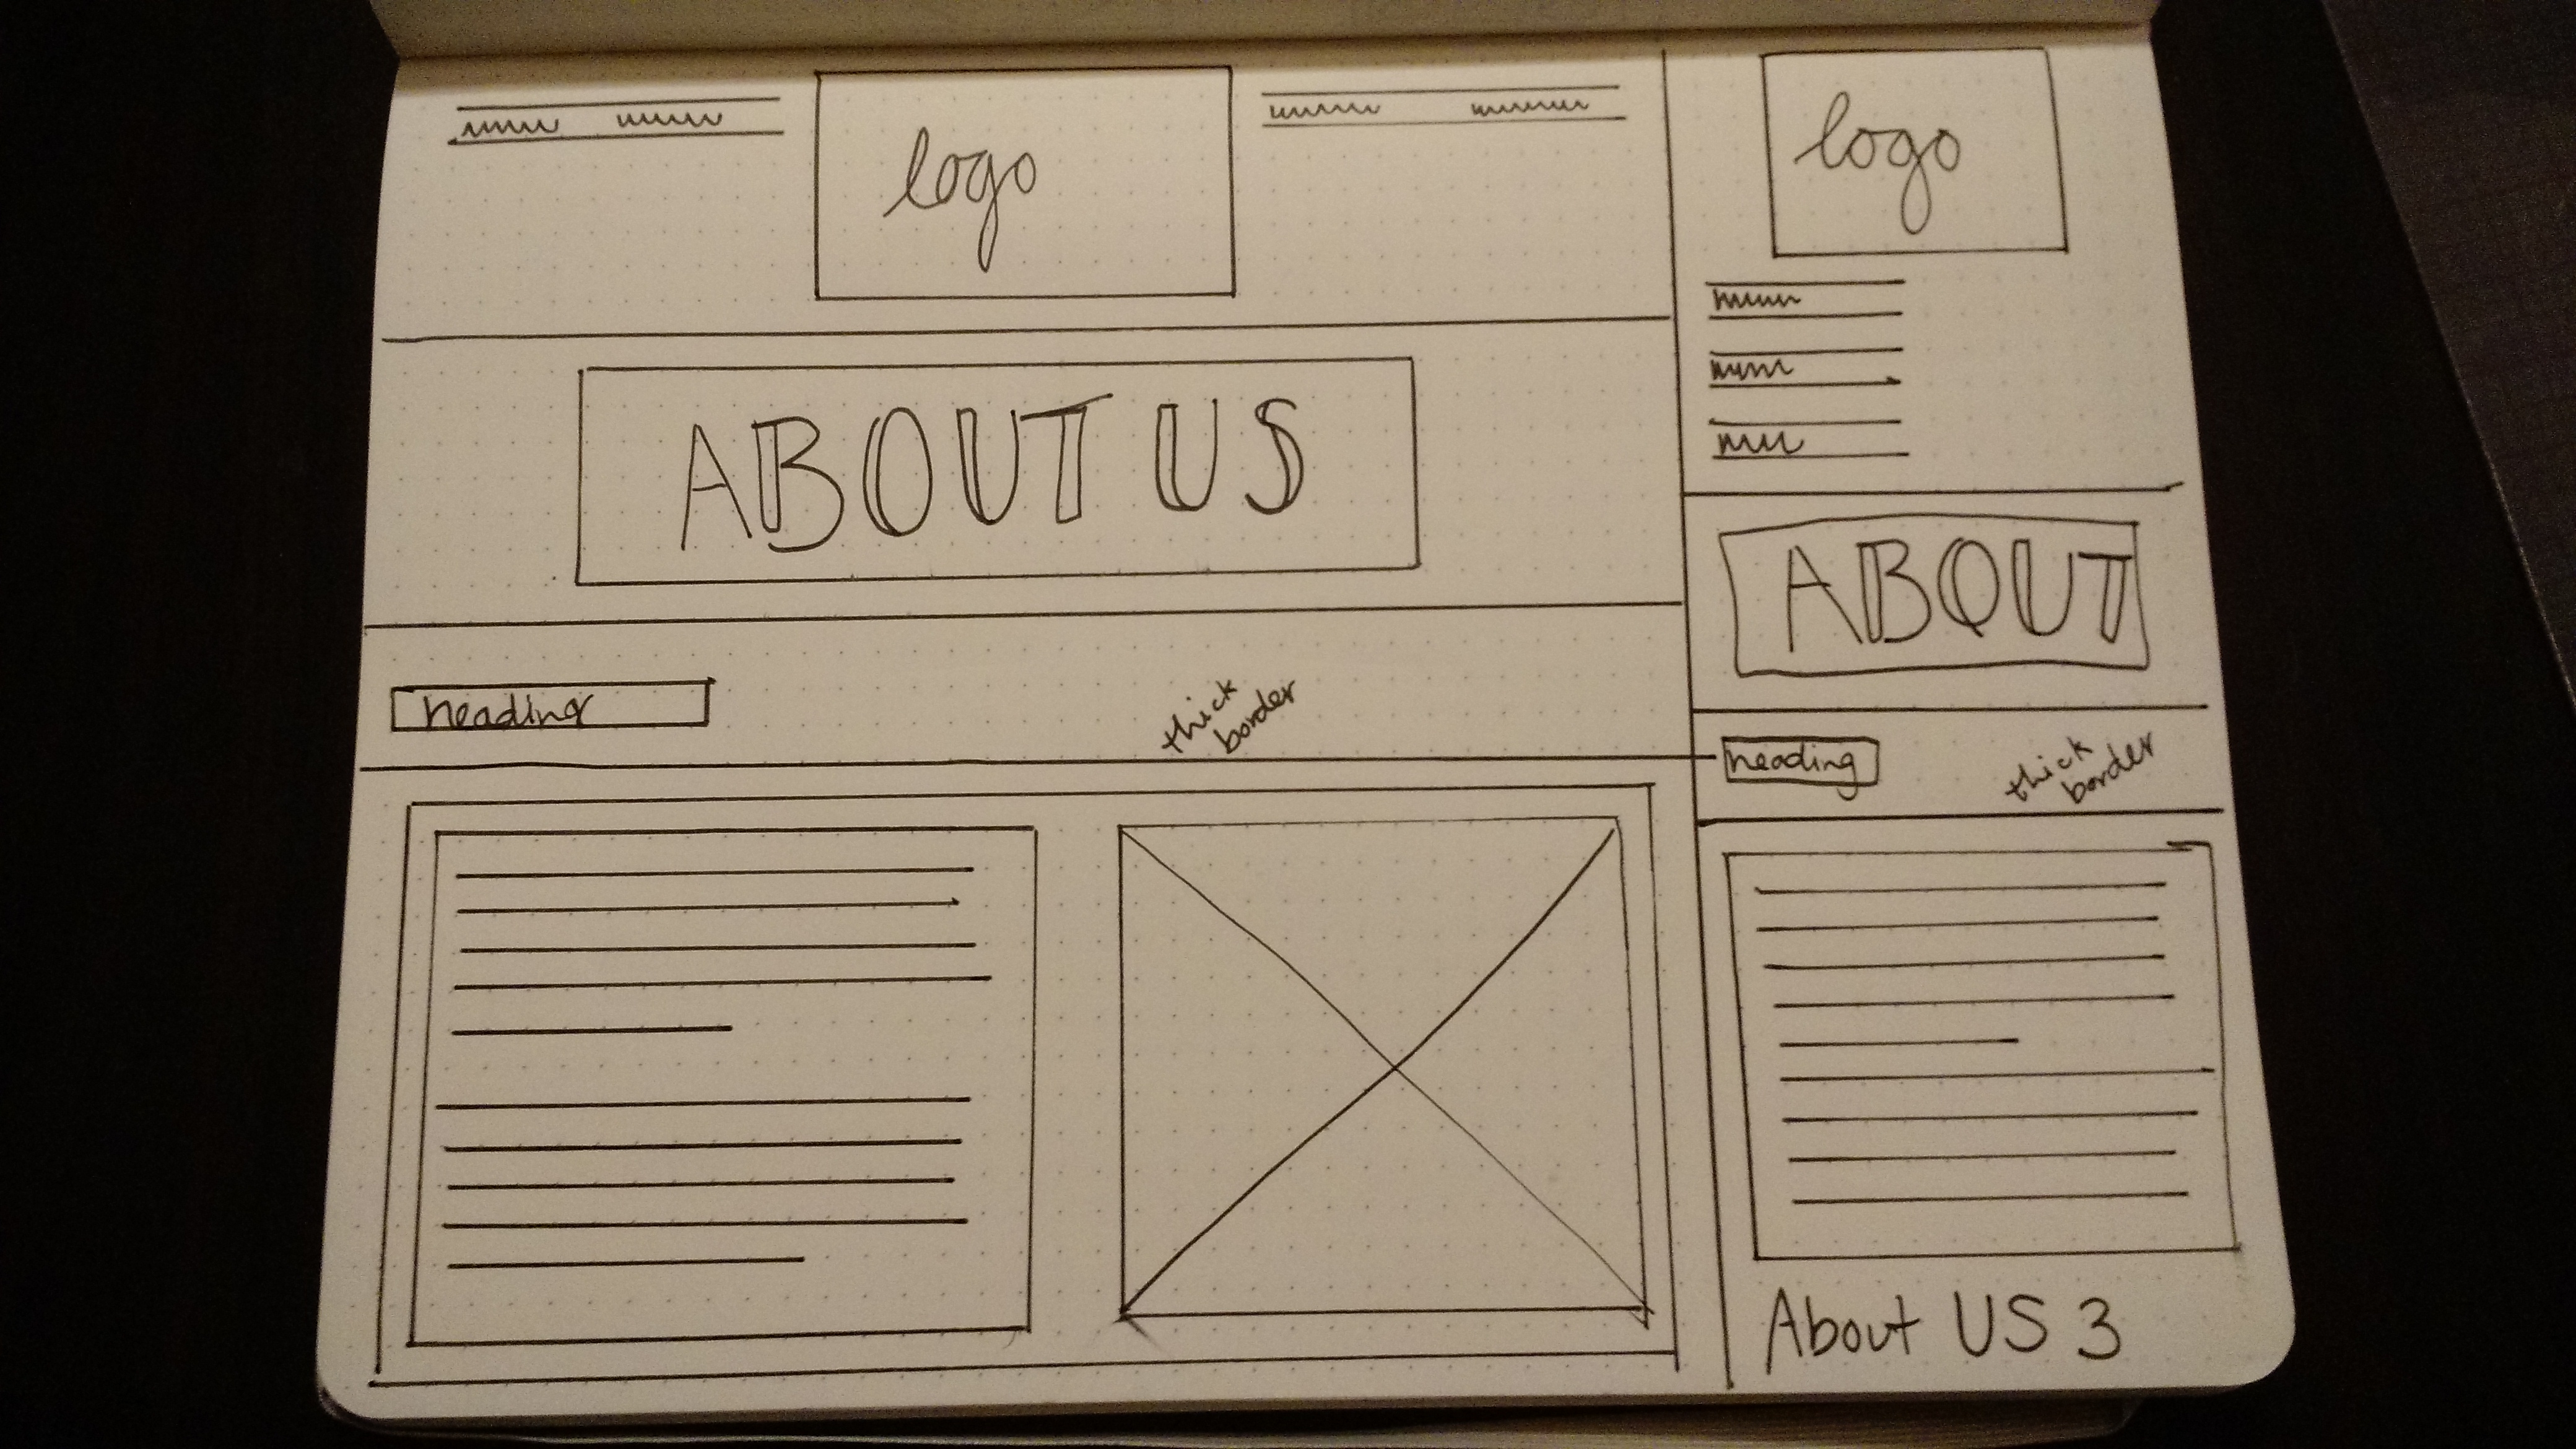 logo
ABOUT US
heading
thick
border
logo
ABOUT
heading
thick
border
About US 3